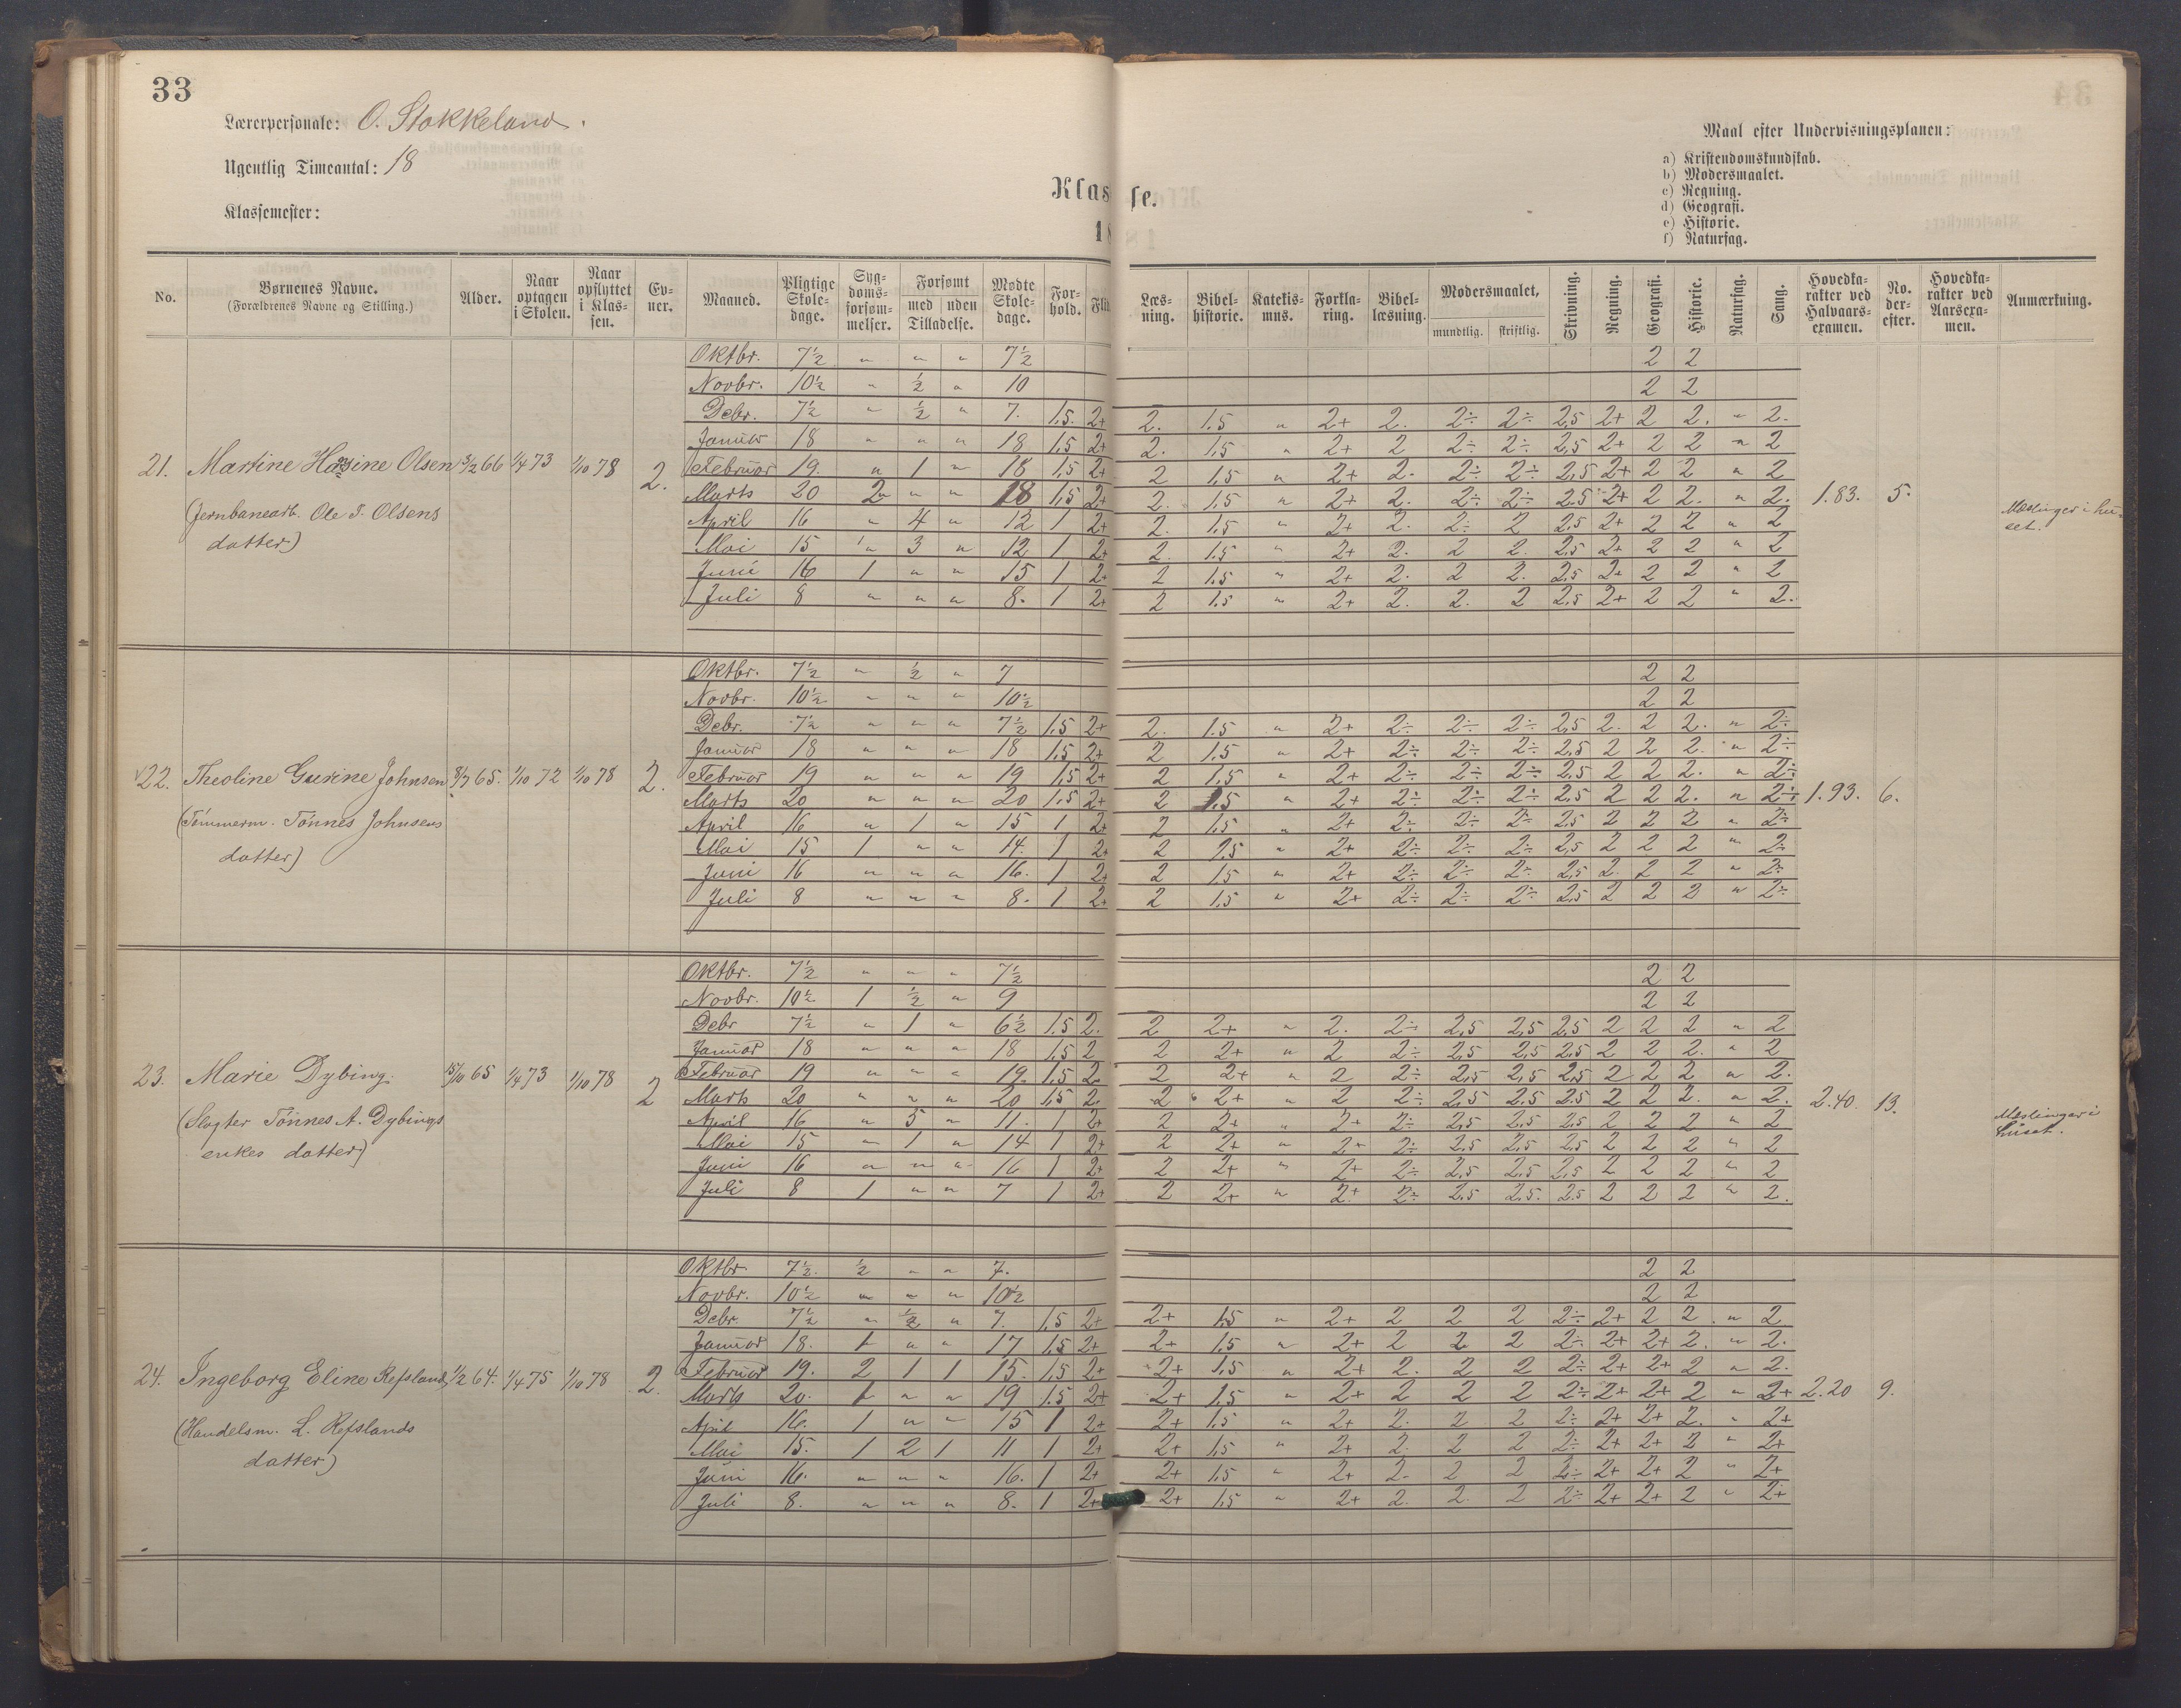 33
Lærerpersonale: O. Stokkeland.
Ugentlig Timeantal: 18
Klassemester:
Klasse.
18
Maal efter Undervisningsplanen:
a) Kristendomskundskab.
b) Modersmaalet.
c) Regning.
d) Geografi.
e) Historie.
f) Naturfag.
No. Børnenes Navne. (Forældrenes Navne og Stilling.) Alder. Naar optagen i Skolen. Naar opflyttet i Klassen. Evner. Maaned. Pligtige Skoledage. Sygdomsforsømmelser. Forsømt med uden Tilladelse. Mødte Skoledage. Forhold. Flid Læsning. Bibelhistorie. Katekismus. Forklaring. Bibellæsning. Modersmaalet, mundtlig. skriftlig. Skrivning. Regning. Geografi. Historie. Naturfag. Sang. Hovedkarakter ved Halvaarsexamen. No. derefter. Hovedkarakter ved Aarsexamen. Anmærkning.
Oktbr. 7½ " " " 7½ 2 2
Novbr. 10½ " ½ " 10 2 2
Debr. 7½ " ½ " 7. 1,5. 2+ 2. 1.5 " 2+ 2. 2÷ 2÷ 2,5 2+ 2 2. " 2.
Januar 18 " " " 18 1,5 2+ 2. 1,5 " 2+ 2 2÷ 2÷ 2,5 2+ 2 2 " 2
21. Martine Hansine Olsen 3/2 66 1/4 73 1/10 78 2. Februar 19. " 1 " 18 1,5 2+ 2 1,5 " 2+ 2. 2÷ 2÷ 2,5 2+ 2 2 " 2
Marts 20 2 " " 18 1,5 2+ 2. 1,5 " 2+ 2. 2÷ 2÷ 2,5 2+ 2 2. " 2. 1.83. 5.
(Jernbanearb. Ole T. Olsens
April 16 " 4 " 12 1 2+ 2. 1,5 " 2+ 2. 2÷ 2 2,5 2+ 2 2 " 2 Mæslinger i huset.
datter)
Mai 15 " 3 " 12 1 2+ 2. 1.5 " 2+ 2. 2 2. 2,5 2+ 2 2 " 2
Juni 16 1 " " 15 1 2+ 2 1,5 " 2+ 2. 2 2. 2,5 2+ 2 2 " 2
Juli 8 " " " 8. 1 2+ 2 1,5 " 2+ 2. 2. 2 2,5 2+ 2 2 " 2.
Oktbr. 7½ " ½ " 7 2 2
Novbr. 10½ " " " 10½ 2 2
Debr. 7½ " " " 7½ 1,5 2+ 2. 1.5 " 2+ 2÷ 2÷ 2÷ 2,5 2. 2 2. " 2÷
Januar 18 " " " 18 1,5 2+ 2 1,5 " 2+ 2÷ 2÷ 2÷ 2,5 2 2 2. " 2÷
22. Theoline Gurine Johnsen 8/7 65. 1/10 72 1/10 78 2. Februar 19 " " " 19 1,5 2+ 2 1,5 " 2+ 2÷ 2÷ 2÷ 2,5 2 2 2. " 2÷
Marts 20 " " " 20 1,5 2+ 2 1.5 " 2+ 2÷ 2÷ 2÷ 2,5 2 2 2. " 2÷ 1.93. 6.
(Tømmerm. Tønnes Johnsens
April 16 " 1 " 15 1 2+ 2 1,5 " 2+ 2÷ 2÷ 2÷ 2,5 2 2 2 " 2÷
Mai 15 1 " " 14. 1 2+ 2 1.5 " 2+ 2÷ 2÷ 2÷ 2,5 2 2 2 " 2÷
datter)
Juni 16 " " " 16. 1 2+ 2 1.5 " 2+ 2÷ 2÷ 2÷ 2,5 2. 2 2 " 2÷
Juli 8 " " " 8. 1 2+ 2 1,5 " 2+ 2÷ 2÷ 2÷ 2,5 2 2 2 " 2÷
Oktbr. 7½ " " " 7½ 2 2
Novbr. 10½ 1 ½ " 9 2 2
Debr 7½ " 1 " 6½ 1.5 2. 2 2+ " 2. 2÷ 2,5 2,5 2,5 2 2 2 " 2
Januar 18 " " " 18 1,5 2 2 2+ " 2 2÷ 2,5 2,5 2,5 2 2 2. " 2
23. Marie Dybing. 15/10 65 1/4 73 1/10 78 2 Februar 19 " " " 19. 1,5 2. 2 2+ " 2 2÷ 2,5 2,5 2,5 2 2 2 " 2.
Marts 20 " " " 20 1,5 2. 2 2+ " 2 2÷ 2,5 2,5 2.5 2 2 2. " 2. 2.40. 13.
(Slagter Tønnes A. Dybings
April 16 " 5 " 11. 1 2+ 2 2+ " 2+ 2÷ 2,5 2,5 2,5 2 2 2 " 2 Mæslinger i huset.
enkes datter)
Mai 15 " 1 " 14 1 2+ 2 2+ " 2+ 2÷ 2,5 2,5 2,5 2 2 2 " 2
Juni 16 " " " 16 1 2+ 2 2+ " 2+ 2÷ 2,5 2,5 2,5 2 2 2 " 2
Juli 8 1 " " 7 1 2+ 2 2+ " 2+ 2÷ 2,5 2,5. 2,5 2 2 2 " 2.
Oktbr. 7½. ½ " " 7. 2 2
Novbr. 10½ " " " 10½ 2 2
Debr. 7½ " ½ " 7. 1,5 2+ 2+ 1,5 " 2+ 2 2 2 2÷ 2+ 2 2. " 2
Januar 18. 1 " " 17 1,5 2+ 2+ 1,5 " 2+ 2 2 2 2÷ 2+ 2+ 2. " 2.
24. Ingeborg Eline Refsland 1/2 64. 1/4 75 1/10 78 2. Februar 19. 2 1 1 15. 1,5 2+ 2+ 1,5 " 2+ 2. 2 2 2÷ 2+ 2+ 2 " 2.
Marts 20. 1 " " 19 1.5 2+ 2+ 1,5 " 2+ 2 2 2 2÷ 2+ 2+ 2 " 2+ 2.20 9.
(Handelsm. L. Refslands
April 16. 1 " " 15 1 2+ 2+ 1,5 " 2+ 2. 2 2 2÷ 2+ 2+ 2. " 2+
datter)
Mai 15. 1 2 1 11 1 2+ 2+ 1,5 " 2+ 2. 2 2 2÷ 2+ 2+ 2 " 2+
Juni 16. " " " 16. 1 2+ 2+ 1,5 " 2+ 2. 2 2 2÷ 2+ 2+ 2 " 2+
Juli 8. " " " 8. 1 2+ 2+ 1,5 " 2+ 2. 2. 2 2÷ 2+ 2+ 2 " 2+